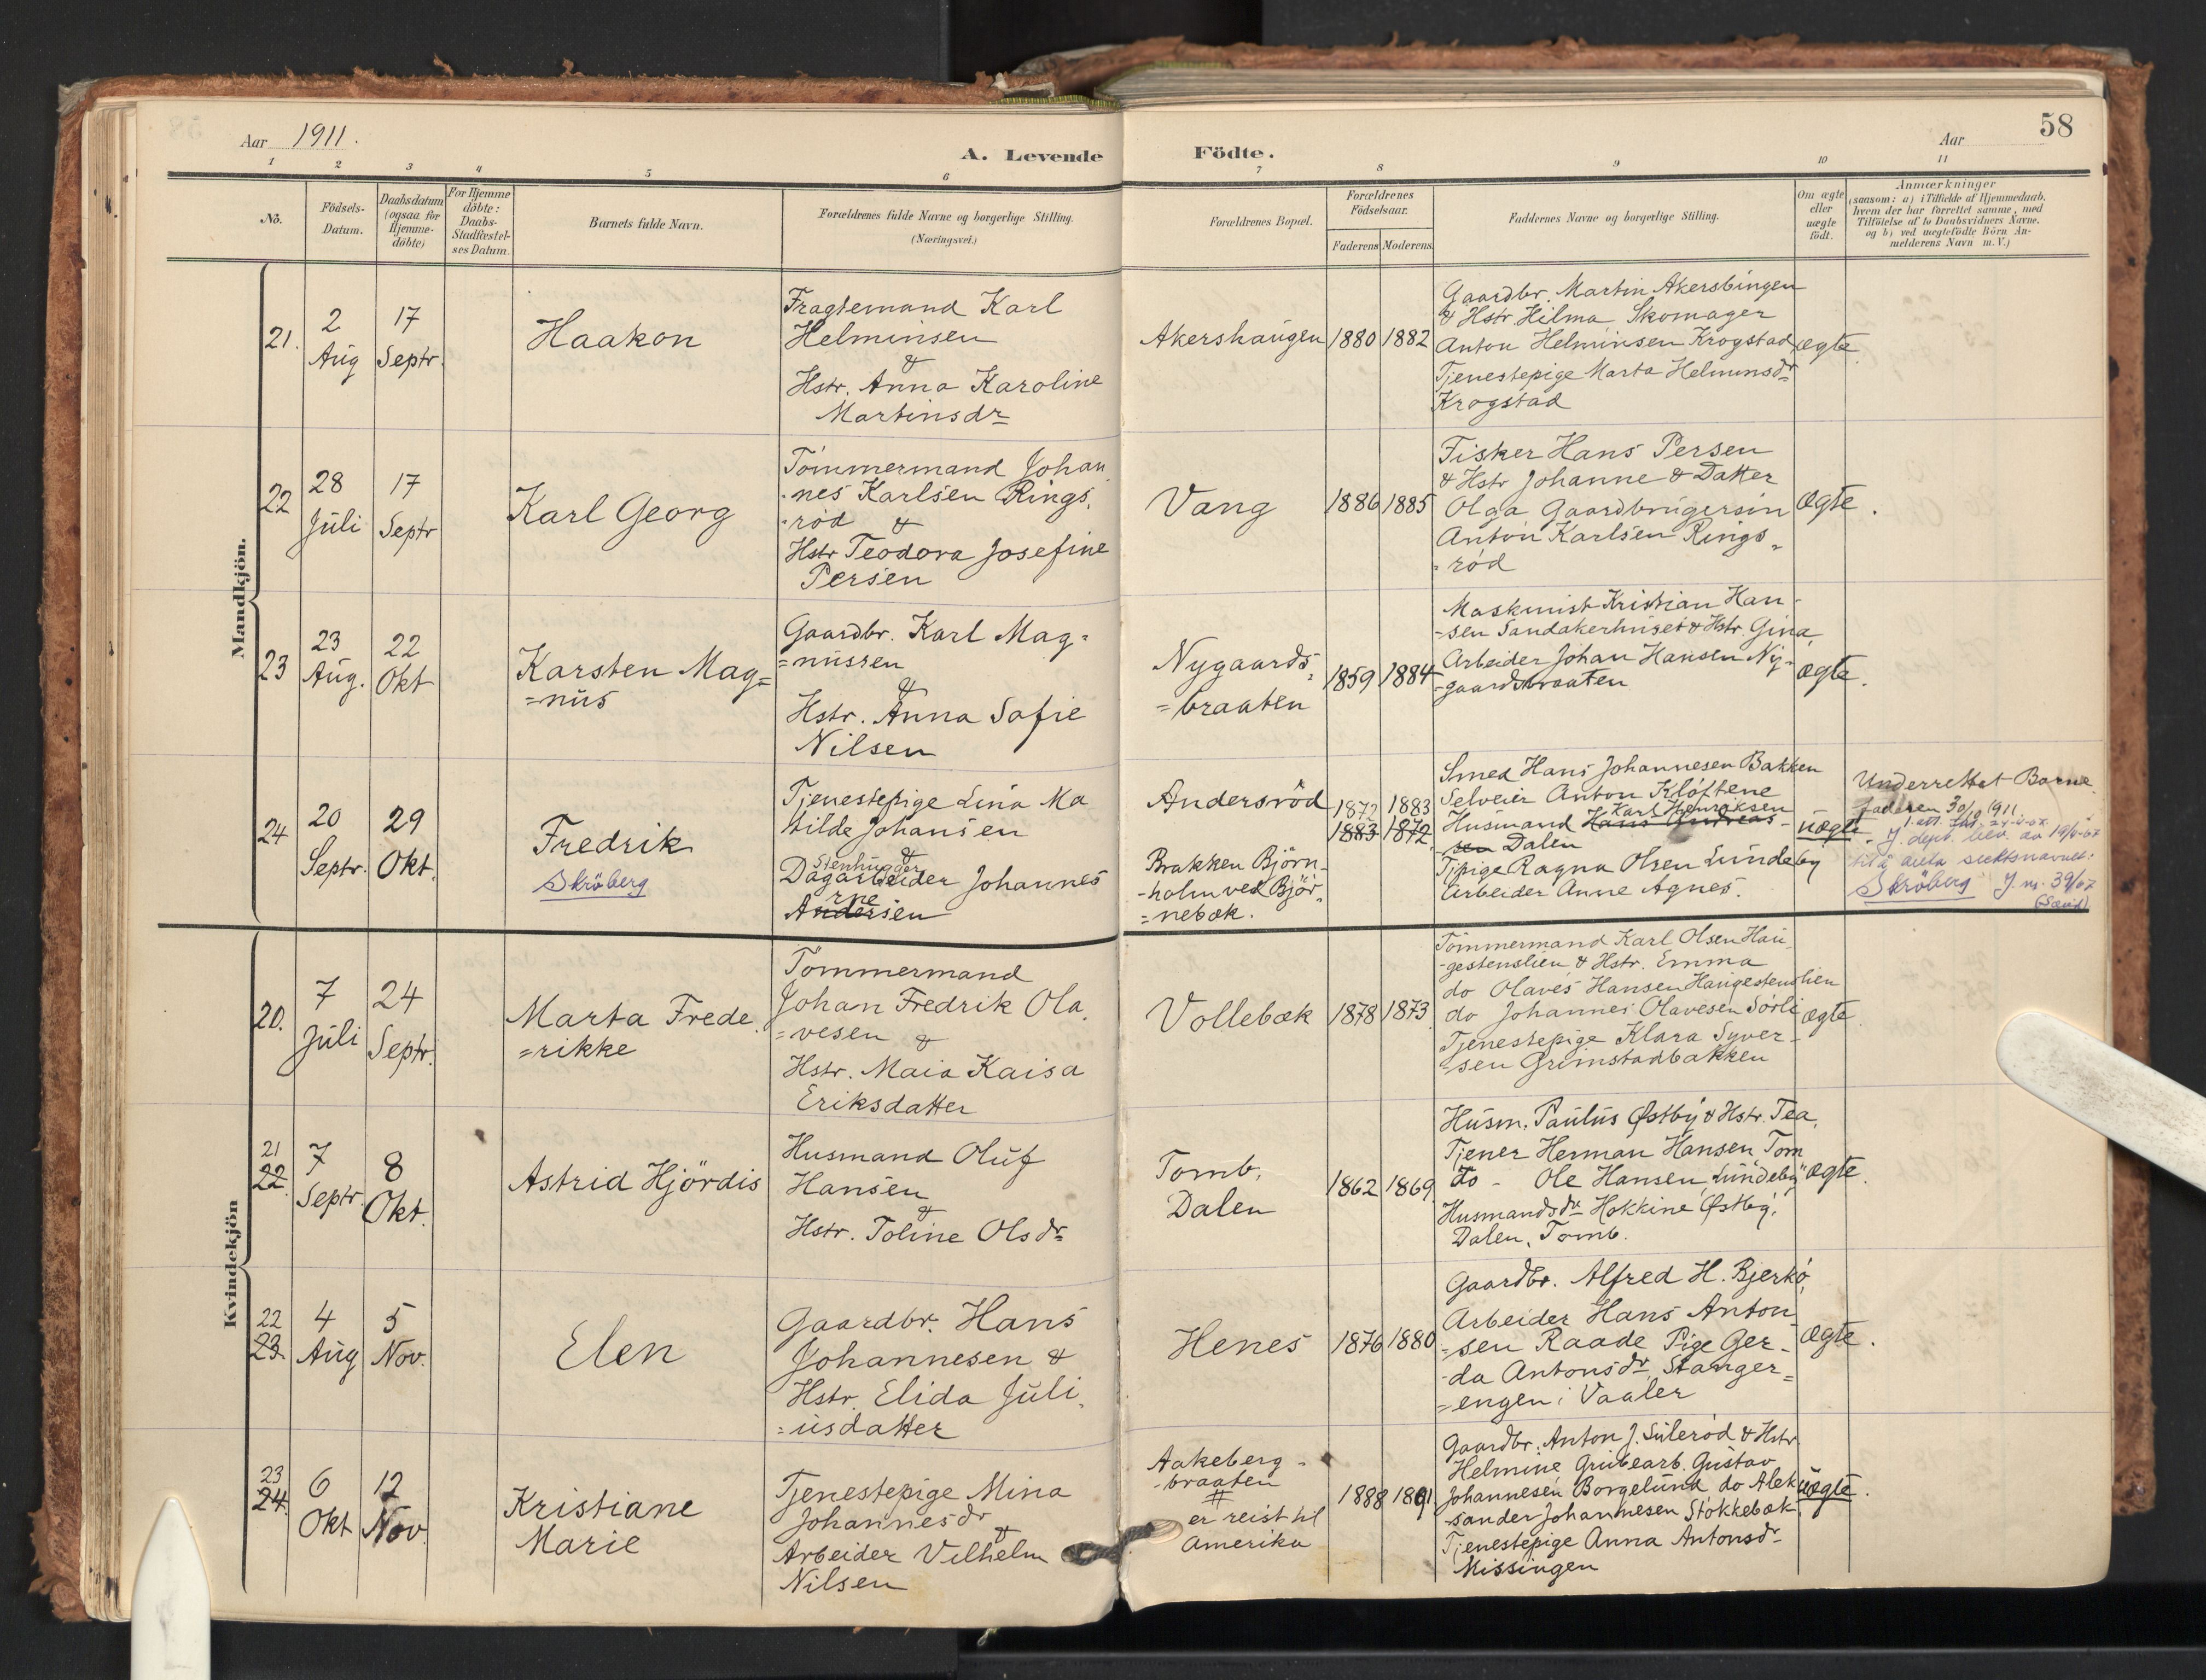 Aar 1911.
A. Levende Födte.
Aar
58
1 2 3 4 5 6 7 8 9 10 11
No.
Födsels-
Datum.
Daabsdatum
(ogsaa for
Hjemme-
döbte)
For Hjemme
döbte:
Daabs-
Stadfæstel-
ses Datum.
Barnets fulde Navn.
Forældrenes fulde Navne og borgerlige Stilling.
(Næringsvei.)
Forældrenes Bopæl.
Forældrenes
Födselsaar.
Faderens Moderens
Faddernes Navne og borgerlige Stilling.
Om ægte
eller
uægte
födt.
Anmærkninger
(saasom: a) i Tilfælde af Hjemmedaab,
hvem der har forrettet samme, med
Tilföielse af to Daabsvidners Navne.
og b) ved uægtefödte Börn An-
melderens Navn m. V.)
Mandkjön.
21.
2
Aug
17
Septr.
Haakon
Fragtemand Karl
Helminsen
&
Hstr. Anna Karoline
Martinsdr
Akershaugen
1880 1882
Gaardbr. Martin Akersbingen
& Hstr Hilma, Skomager
Anton Helminsen Krogstad
Tjenestepige Marta Helminsdr
Krogstad
ægte
22
28
Juli
17
Septr
Karl Georg
Tömmermand Johan
-nes Karlsen Rings,
-röd &
Hstr Teodora Josefine
Persen
Vang
1886 1885
Fisker Hans Persen
& Hstr Johanne & Datter
Olga Gaardbrugersön
Anton Karlsen Rings-
-röd
ægte.
23
23
Aug.
22
Okt
Karsten Mag=
=nus
Gaardbr. Karl Mag=
=nussen
&
Hstr. Anna Sofie
Nilsen
Nygaards-
=braaten
1859 1884
Maskinist Kristian Han-
-sen Sandakerhuset & Hstr. Gina
Arbeider Johan Hansen Ny-
-gaardsbraaten
ægte.
24
20
Septr.
29
Okt.
Fredrik
Skröberg
Tjenestepige Lina Ma
tilde Johansen
&
Stenhugger
Dagarbeider Johannes
rne
Andersen
Andersröd
Brakken Björn-
-holm ved Björ-
=nebæk.
1872 1883
1883 1872
Smed Hans Johannesen Bakken
Selveier Anton Kloftene
Karl Henriksen
Husmand Hans Andreas-
sen Dalen
Tjpige Ragna Olsen Lundeby
Arbeider Anne Agnes.
uægte
Underrettet Barne
faderen 30/10 1911.
J. dept. bev. av 19/4-67
til å anta slektsnavnet:
Skröberg J.nr. 39/67
Kvindekjön
20.
7
Juli
24
Septr.
Marta Frede
=rikke
Tömmermand
Johan Fredrik Ola,
=vesen &
Hstr. Maia Kaisa
Eriksdatter
Vollebæk
1878 1873
Tömmermand Karl Olsen Hau-
-gestenslien & Hstr. Emma
do Olaves Hansen Haugestenslien
do Johannes Olavesen Sörli
Tjenestepige Klara Syver-
-sen Grimstadbakken
ægte
21
22.
7
Septr
8
Okt.
Astrid Hjördis
Husmand Oluf
Hansen
&
Hstr. Toline Olsdr
Tomb,
Dalen
1862 1869
Husm. Paulus Østby & Hstr. Tea,
Tjener Herman Hansen Tom
do - Ole Hansen Lundeby
Husmandsdr Hokkine Østby,
Dalen, Tomb.
ægte.
22
23
4
Aug
5
Nov.
Elen
Gaardbr. Hans
Johannesen &
Hstr. Elida Juli,
=usdatter
Henes
1876 1880
Gaardbr. Alfred H. Bjerkö,
Arbeider Hans Anton
-sen Raade Pige Ger-
-da Antonsdr, Stanger=
=engen i Vaaler
ægte.
23
24.
6
Okt
12
Nov.
Kristiane
Marie
Tjenestepige Mina
Johannesdr
&
Arbeider Vilhelm
Nilsen
Aakeberg-
-braaten
#
er reist til
Amerika
1888 1891
Gaardbr. Anton J. Sulerod & Hstr
Helmine Grubearb. Gustav
Johannesen Borgelund do Alek
-sander Johannesen Stokkebæk
Tjenestepige Anna Antonsdr
Missingen
uægte.